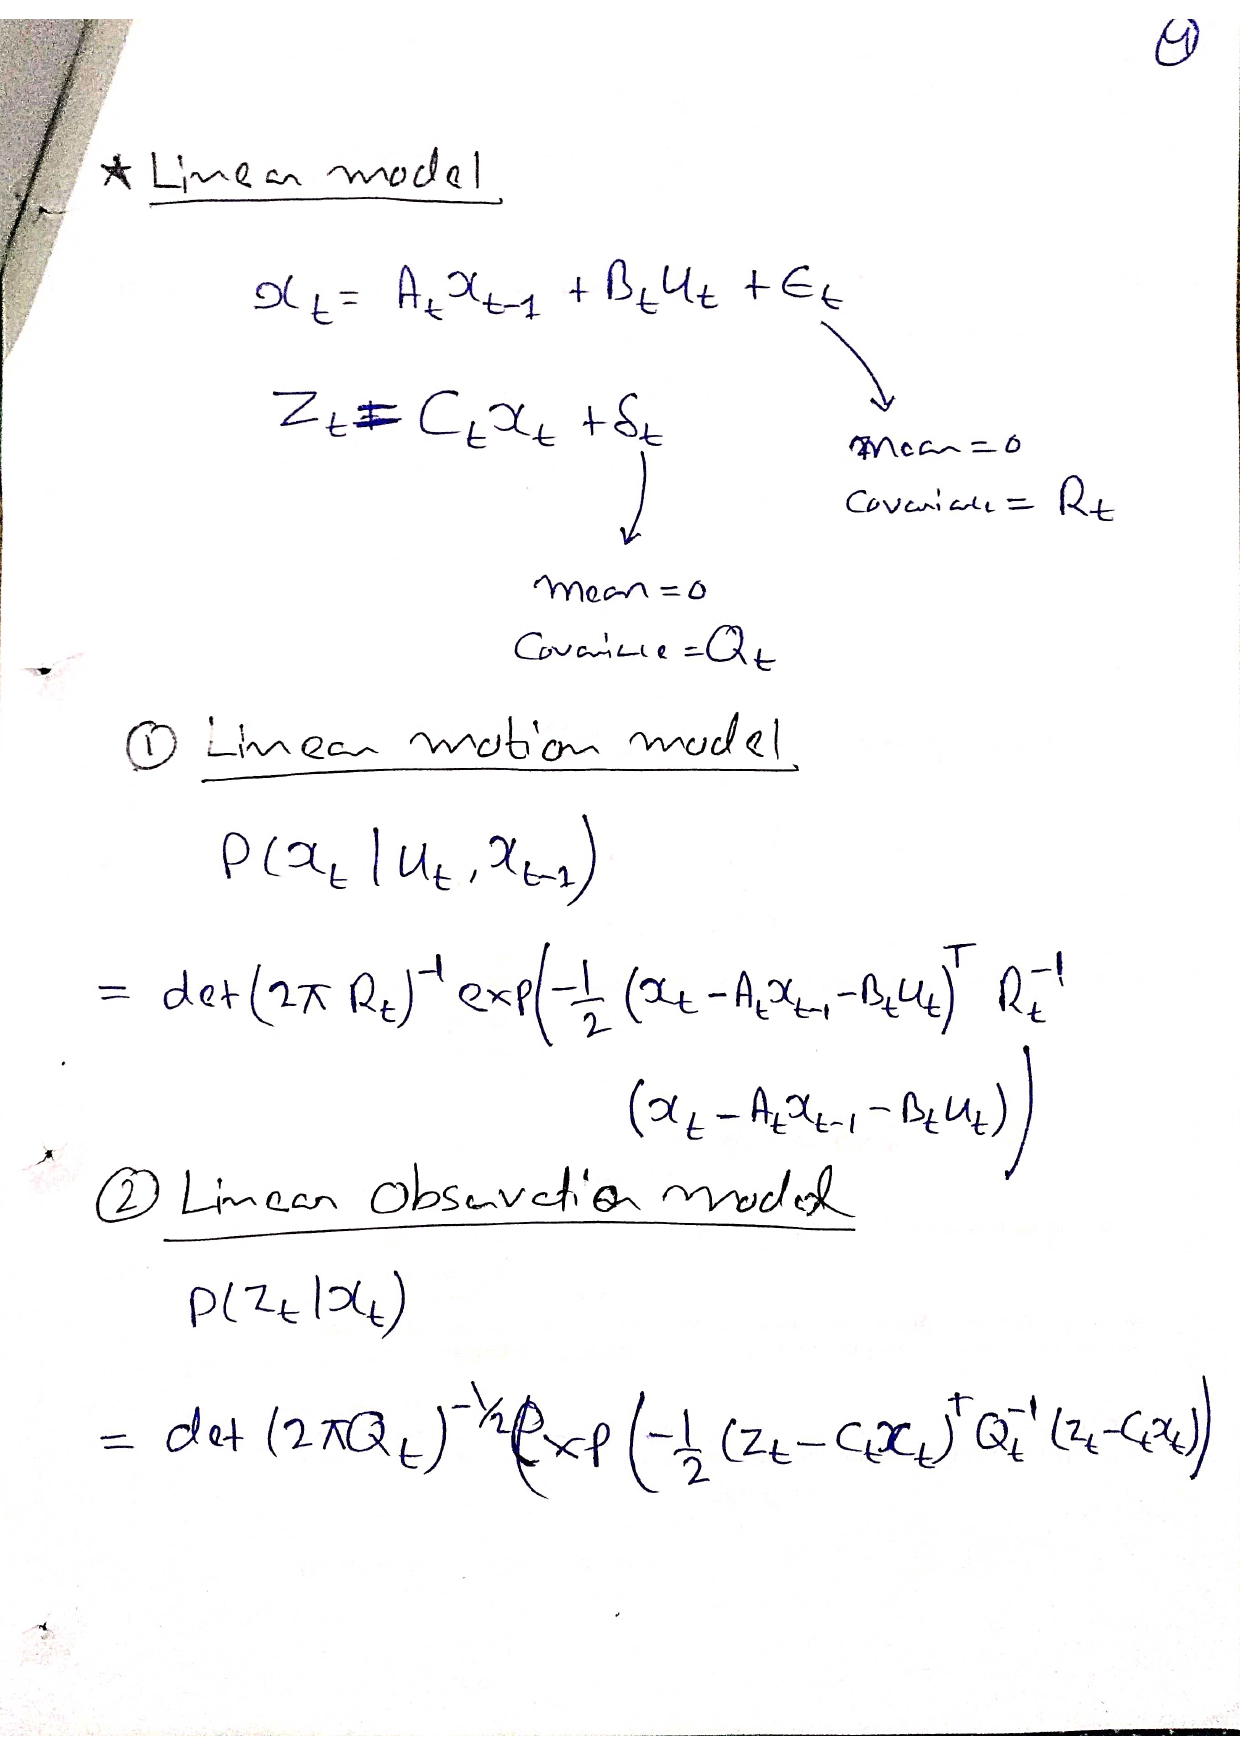 ④
★ Linear model
x_t = A_t x_{t-1} + B_t u_t + ϵ_t
Z_t = C_t x_t + δ_t
mean = 0
Covariance = R_t
mean = 0
Covariance = Q_t
① Linear motion model
P(x_t | u_t, x_{t-1})
= det(2π R_t)^{-1} exp(-1/2 (x_t - A_t x_{t-1} - B_t u_t)^T R_t^{-1}
(x_t - A_t x_{t-1} - B_t u_t))
② Linear Observation model
P(Z_t | x_t)
= det (2π Q_t)^{-1/2} exp (-1/2 (Z_t - C_t x_t)^T Q_t^{-1} (Z_t - C_t x_t))